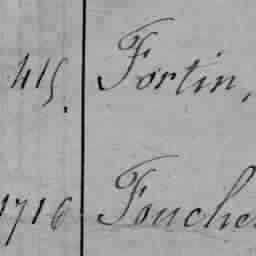 415. Fortin,
1716 Fouche